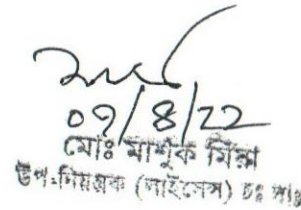 ০৭/8/22
মোঃ মাশুক মিঞা
উপ-নিয়ন্ত্রক (লাইসেন্স) চঃ দাঃ